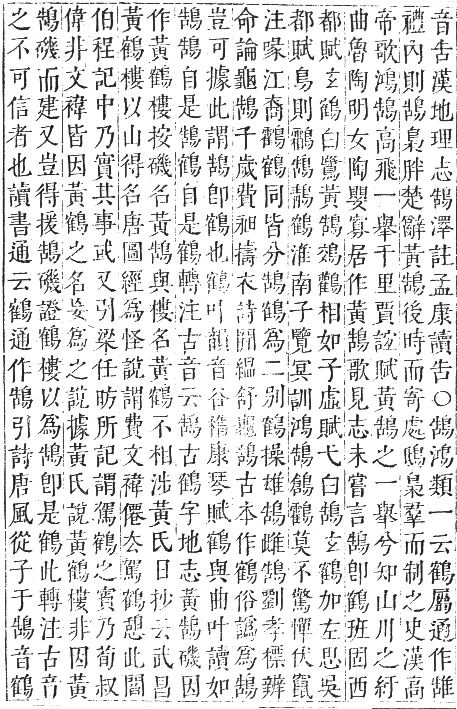 音告漢地理志鵠澤註孟康讀告○鵠鴻類一云鶴屬通作
禮內則鵠梟胖楚辭黃鵠後時而寄處鴟梟羣而制之史漢高
帝歌鴻鵠高飛一舉千里賈誼賦黃鵠之一舉兮知山川之紆
曲魯陶明女陶嬰寡居作黃鵠歌見志未嘗言鵠卽鶴班固西
都賦玄鶴白鷺黃鵠鵁鸛相如子虛賦弋白鵠玄鶴加左思吳
都賦鳥則鸘鵠鷫鶴淮南子覽冥訓鴻鵠鶬鸖莫不驚憚伏竄
注喙江裔鸖鶴同皆分鵠鶴爲二別鶴操雄鵠雌鵠劉孝標辨
命論龜鵠千歲費昶擣衣詩開緼舒龜鵠古本作鶴俗譌爲鵠
豈可據此謂鵠卽鶴也鶴叶韻音谷嵇康琴賦鶴與曲叶讀如
鵠鵠自是鵠鶴自是鶴轉注古音云鵠古鶴字地志黃鵠磯因
作黃鶴樓按磯名黃鵠與樓名黃鶴不相涉黃氏日抄云武昌
黃鶴樓以山得名唐圖經爲怪說謂費文褘僊去駕鶴憩此閻
伯程記中乃實其事武又引梁任昉所記謂駕鶴之賓乃荀叔
偉非文褘皆因黃鶴之名妄爲之說據黃氏說黃鶴樓非因黃
鵠磯而建又豈得援鵠磯證鶴樓以爲鵠卽是鶴此轉注古音
之不可信者也讀書通云鶴通作鵠引詩唐風從子于鵠音鶴